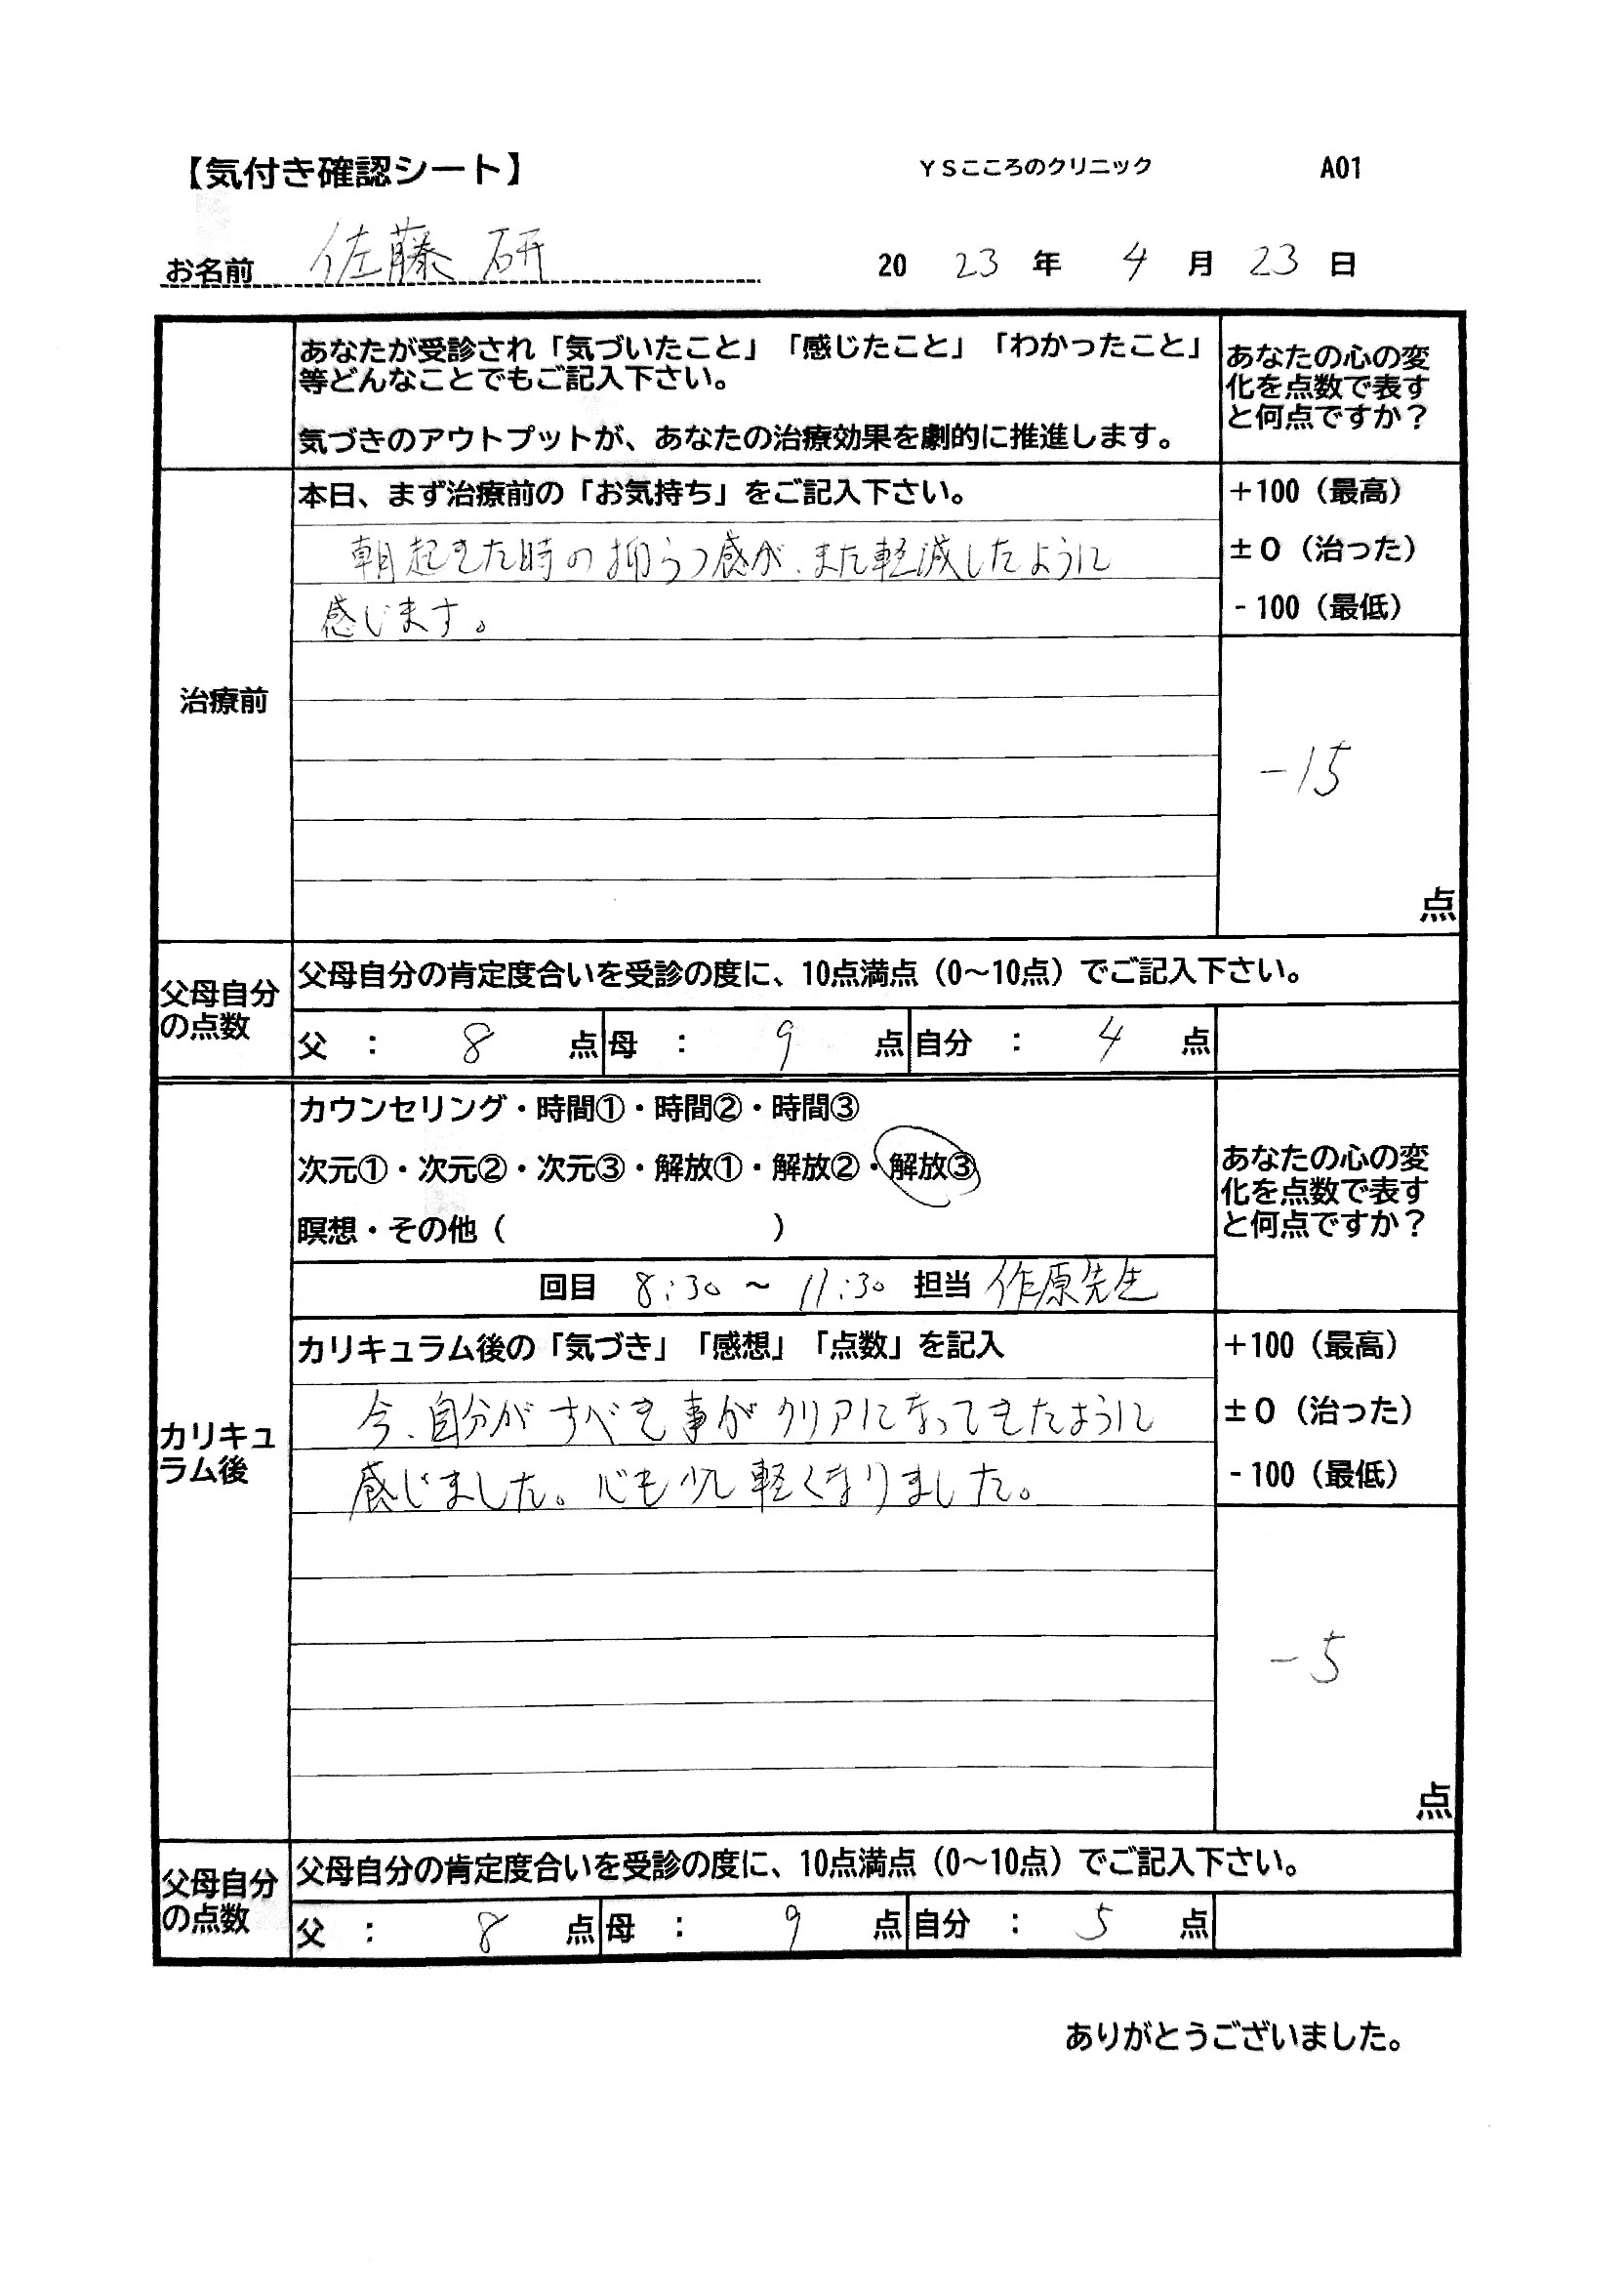 【気付き確認シート】 YSこころのクリニック A01
お名前 佐藤 研 2023年 4月 23日
あなたが受診され「気づいたこと」「感じたこと」「わかったこと」
等どんなことでもご記入下さい。
気づきのアウトプットが、あなたの治療効果を劇的に推進します。
あなたの心の変
化を点数で表す
と何点ですか？
治療前
本日、まず治療前の「お気持ち」をご記入下さい。
朝起きた時の抑うつ感が、また軽減したように
感じます。
+100（最高）
±0（治った）
-100（最低）
-15
点
父母自分
の点数
父母自分の肯定度合いを受診の度に、10点満点（0～10点）でご記入下さい。
父 ： 8 点 母 ： 9 点 自分 ： 4 点
カリキュ
ラム後
カウンセリング・時間①・時間②・時間③
次元①・次元②・次元③・解放①・解放②・解放③
瞑想・その他（ ）
回目 8:30 ～ 11:30 担当 作原先生
あなたの心の変
化を点数で表す
と何点ですか？
カリキュラム後の「気づき」「感想」「点数」を記入
今、自分がすべき事がクリアになってきたように
感じました。心も少し軽くなりました。
+100（最高）
±0（治った）
-100（最低）
-5
点
父母自分
の点数
父母自分の肯定度合いを受診の度に、10点満点（0～10点）でご記入下さい。
父 ： 8 点 母 ： 9 点 自分 ： 5 点
ありがとうございました。